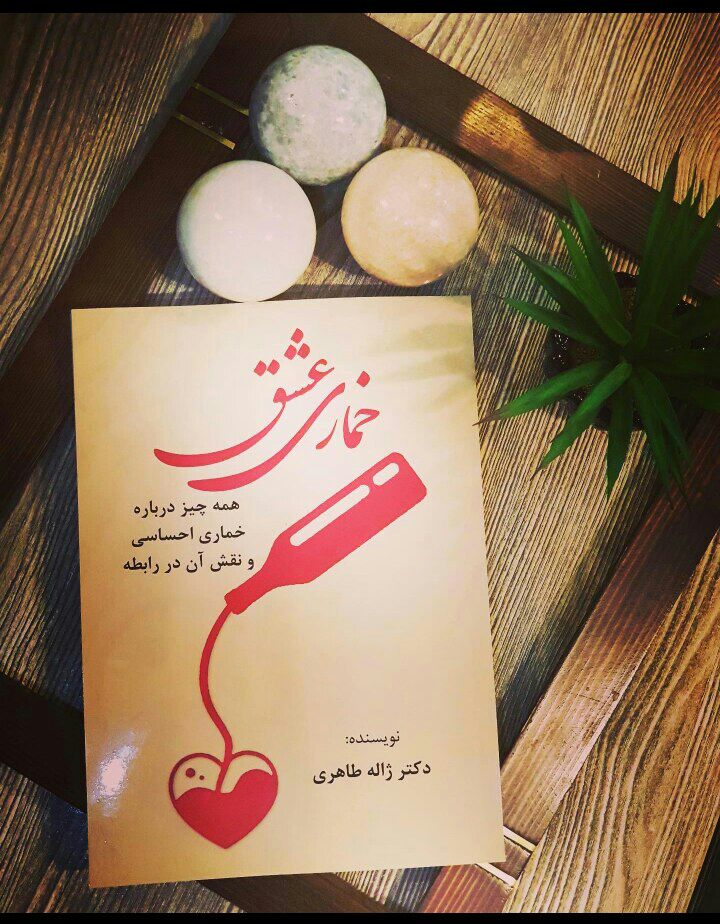 خماری عشق
همه چیز درباره
خماری احساسی
و نقش آن در رابطه
نویسنده:
دکتر ژاله طاهری